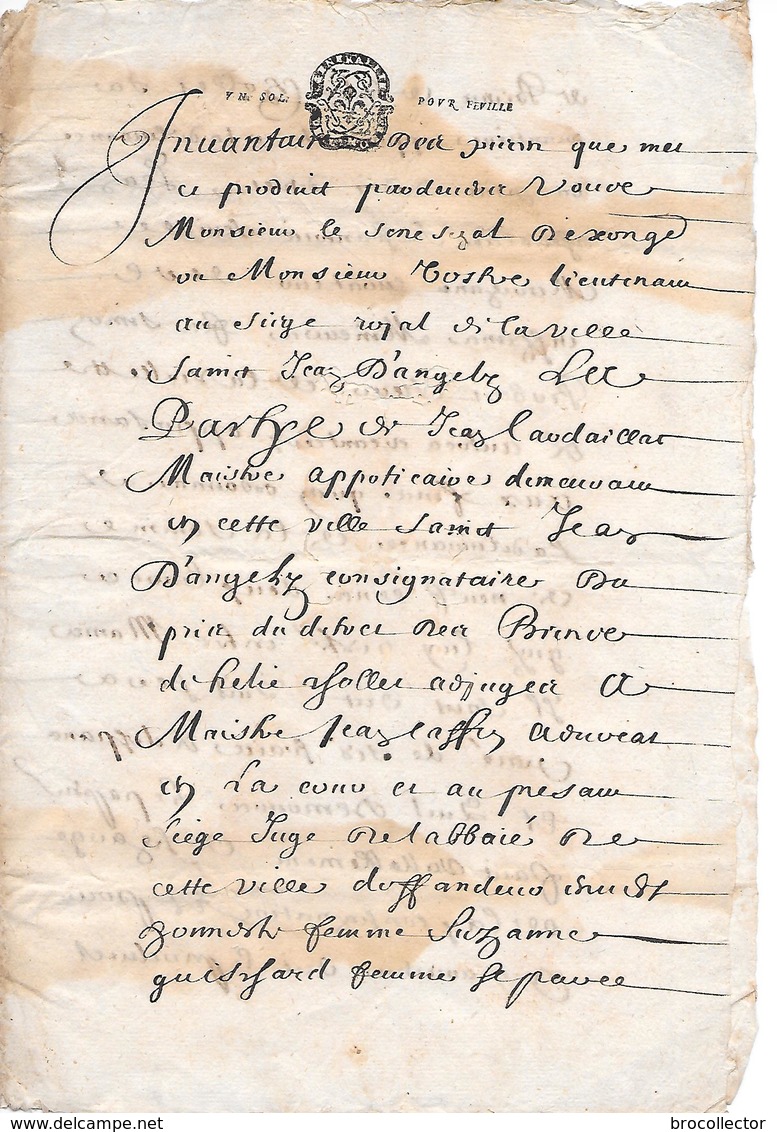 VN SOL. POVR FEVILLE
Inuantaire Des pieces que met
et produict pardeuers Vous
Monsieur le seneschal
ou Monsieur lieutenant
au siege royal de la ville
sainct Jean D'angely Les
Partye de Jean Caudaillac
Maistre appoticaire demeurant
en cette ville sainct Jean
D'angely consignataire Du
prix du des
de helie adjuges A
Maistre Jean laffon aduocat
en La cour et au presant
siege Juge De labbaie De
cette ville deffandeur
honneste femme Suzanne
guischard femme separee
delcampe.net
brocollector